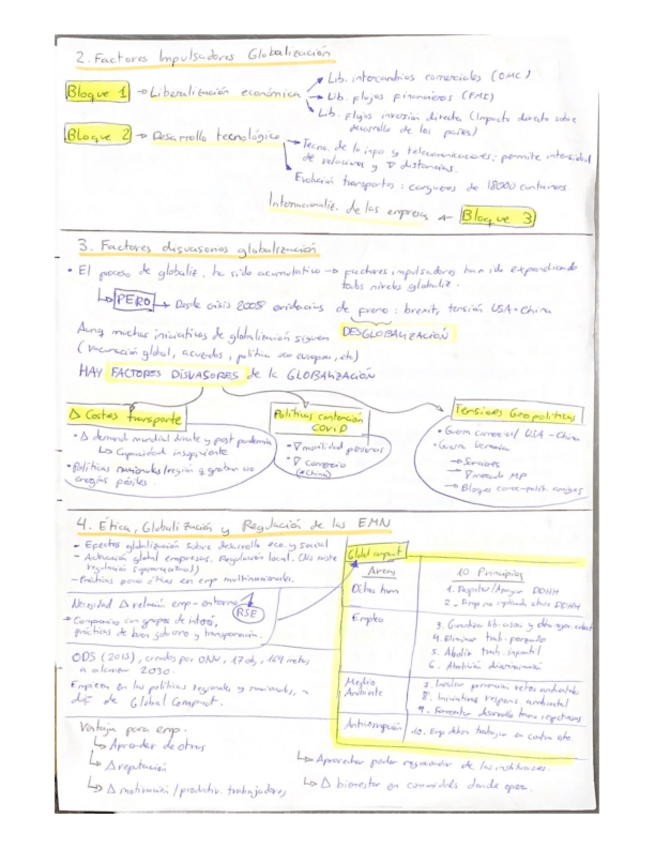 2. Factores Impulsadores Globalización
Bloque 1 → Liberalización económica
Lib. intercambios comerciales (OMC)
Lib. flujos financieros (FMI)
Lib. flujos inversión directa (Impacto directo sobre
desarrollo de los países)
Bloque 2 → Desarrollo tecnológico
Tecno. de la info y telecomunicaciones: permite intensidad
de relaciones y ∇ distancias.
Evolución transportes: cargueros de 18000 contenedores
Internacionaliz. de las empresas ← Bloque 3
3. Factores disuasorios globalización
• El proceso de globaliz. ha sido acumulativo → factores impulsadores han ido expandiendo
niveles globaliz.
↳ PERO → Desde crisis 2008 evidencias de freno: brexit, tensión USA-China
Aunq muchas iniciativas de globalización siguen DESGLOBALIZACIÓN
(Vacunación global, acuerdos, política europea, etc)
HAY FACTORES DISUASORES de la GLOBALIZACIÓN
Δ Costes transporte
• Δ demanda mundial durante y post pandemia
↳ Capacidad insuficiente
• Políticas nacionales/región q graban uso
energías fósiles.
Políticas contención
COVID
• ∇ movilidad personas
• ∇ Comercio
(*China)
Tensiones Geopolíticas
• Guerra comercial USA-China
• Guerra Ucrania
→ Sanciones
→ ∇ mercado MP
→ Bloques comerc-polít. amigos
4. Ética, Globalización y Regulación de las EMN
- Efectos globalización sobre desarrollo eco. y social
- Actuación global empresas. Regulación local. (No existe
regulación supranacional)
- Prácticas poco éticas en emp multinacionales.
Necesidad Δ relación emp-entorno
RSE
→ Compromiso con grupos de interés,
prácticas de buen gobierno y transparencia.
ODS (2015), creados por ONU, 17 obj, 169 metas
a alcanzar 2030.
Empiezan en las políticas regionales y nacionales, a
dif de Global Compact.
Global compact
Áreas
10 Principios
Dchos hum
1. Respetar/Apoyar DDHH
2. Emp no cómplices DDHH
Empleo
3. Garantizar lib asoc y
4. Eliminar trab. forzado
5. Abolir trab. infantil
6. Abolición discriminación
Medio
Ambiente
7. retos ambientales
8. Iniciativas respons. ambiental
9. Fomentar desarrollo tecno respetuosas
Anticorrupción
10. Emp deben trabajar en contra
Ventajas para emp.
↳ Aprender de otros
↳ Δ reputación
↳ Δ motivación/productiv. trabajadores
↳ Aprovechar poder de las instituciones.
↳ Δ bienestar en comunidades donde opera.